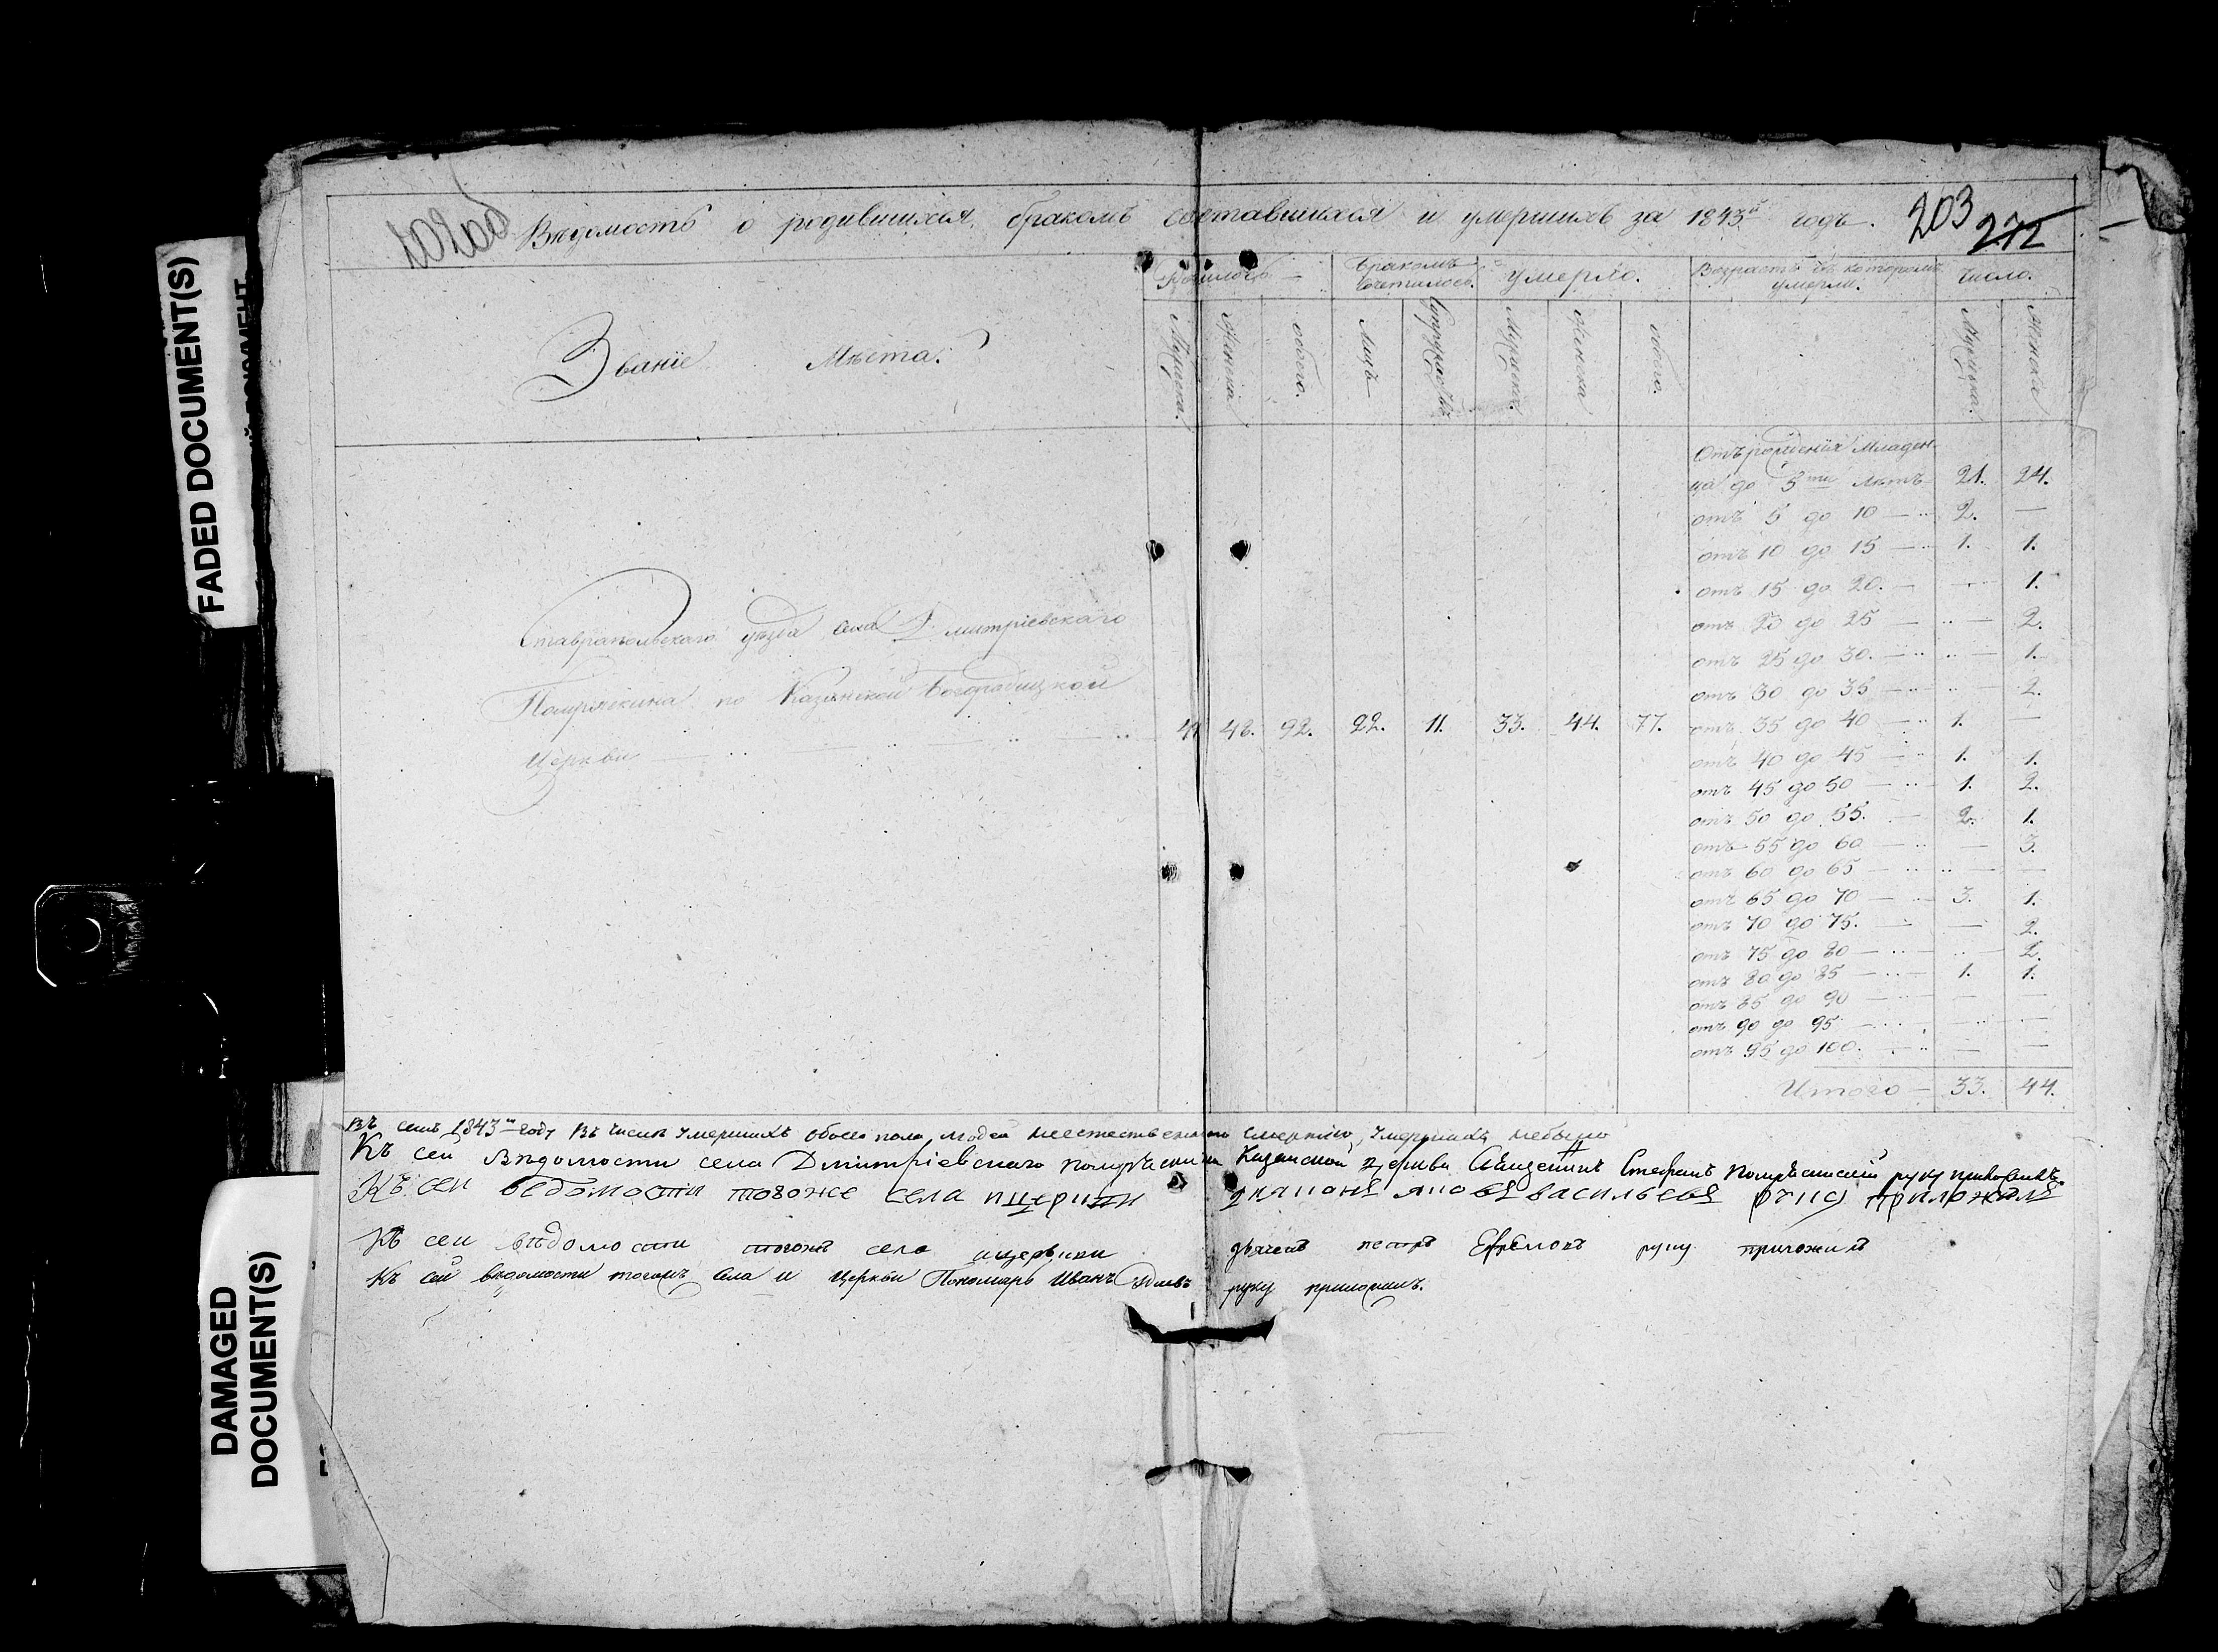 FADED DOCUMENT(S)
DAMAGED
DOCUMENT(S)
202об
203
272
Вѣдомость о родившихся, бракомъ сочетавшихся и умершихъ за 1843й годъ.
Званіе Мѣста.
Родилось
Бракомъ сочеталось.
Умерло.
Возрастъ въ которомъ умерли.
Число.
Мужеска. Женска обоего. лицъ супружествъ Мужеска. Женска обоего. Мужеска. Женска
Ставропольскаго уѣзда села Дмитріевскаго
Помрякина по Казанской Богородицкой
Церкви
46. 92. 22. 11. 33. 44. 77.
Отъ рожденія Младен-
ца до 5ти лѣтъ 21. 24.
отъ 5 до 10 2. —
отъ 10 до 15 1. 1.
отъ 15 до 20. — 1.
отъ 20 до 25 — 2.
отъ 25 до 30. — 1.
отъ 30 до 35 — 2.
отъ 35 до 40 1. —
отъ 40 до 45 1. 1.
отъ 45 до 50 1. 2.
отъ 50 до 55. 2. 1.
отъ 55 до 60 — 3.
отъ 60 до 65 — —
отъ 65 до 70 3. 1.
отъ 70 до 75. — 2.
отъ 75 до 80 — 2.
отъ 80 до 85 1. 1.
отъ 85 до 90 — —
отъ 90 до 95 — —
отъ 95 до 100. — —
Итого — 33. 44.
Въ семъ 1843м году въ числѣ умершихъ обоего пола, людей неестественною смертію, умершихъ небыло
Къ сей Вѣдомости села Дмитріевскаго Казанской церкви Священникъ Стефанъ руку приложилъ.
Къ сеи ведомости тогоже села ицеркви васильевъ руку приложилъ
Къ сеи вѣдомости тогожъ села ицеркви дьячекъ петръ Ефремовъ руку приложилъ
Къ сей вѣдомости тогожъ села и Церкви Пономарь Иванъ руку приложилъ.